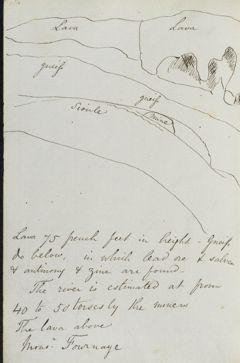 Lava
Lava
gneiss
gneiss
Sioule
mine
Lava 75 french feet in height - Gneiss
do below, in which lead ore & silver
& antimony & zinc are found.
The river is estimated at from
40 to 50 toises by the miners
The lava above
Monsr. Fournage